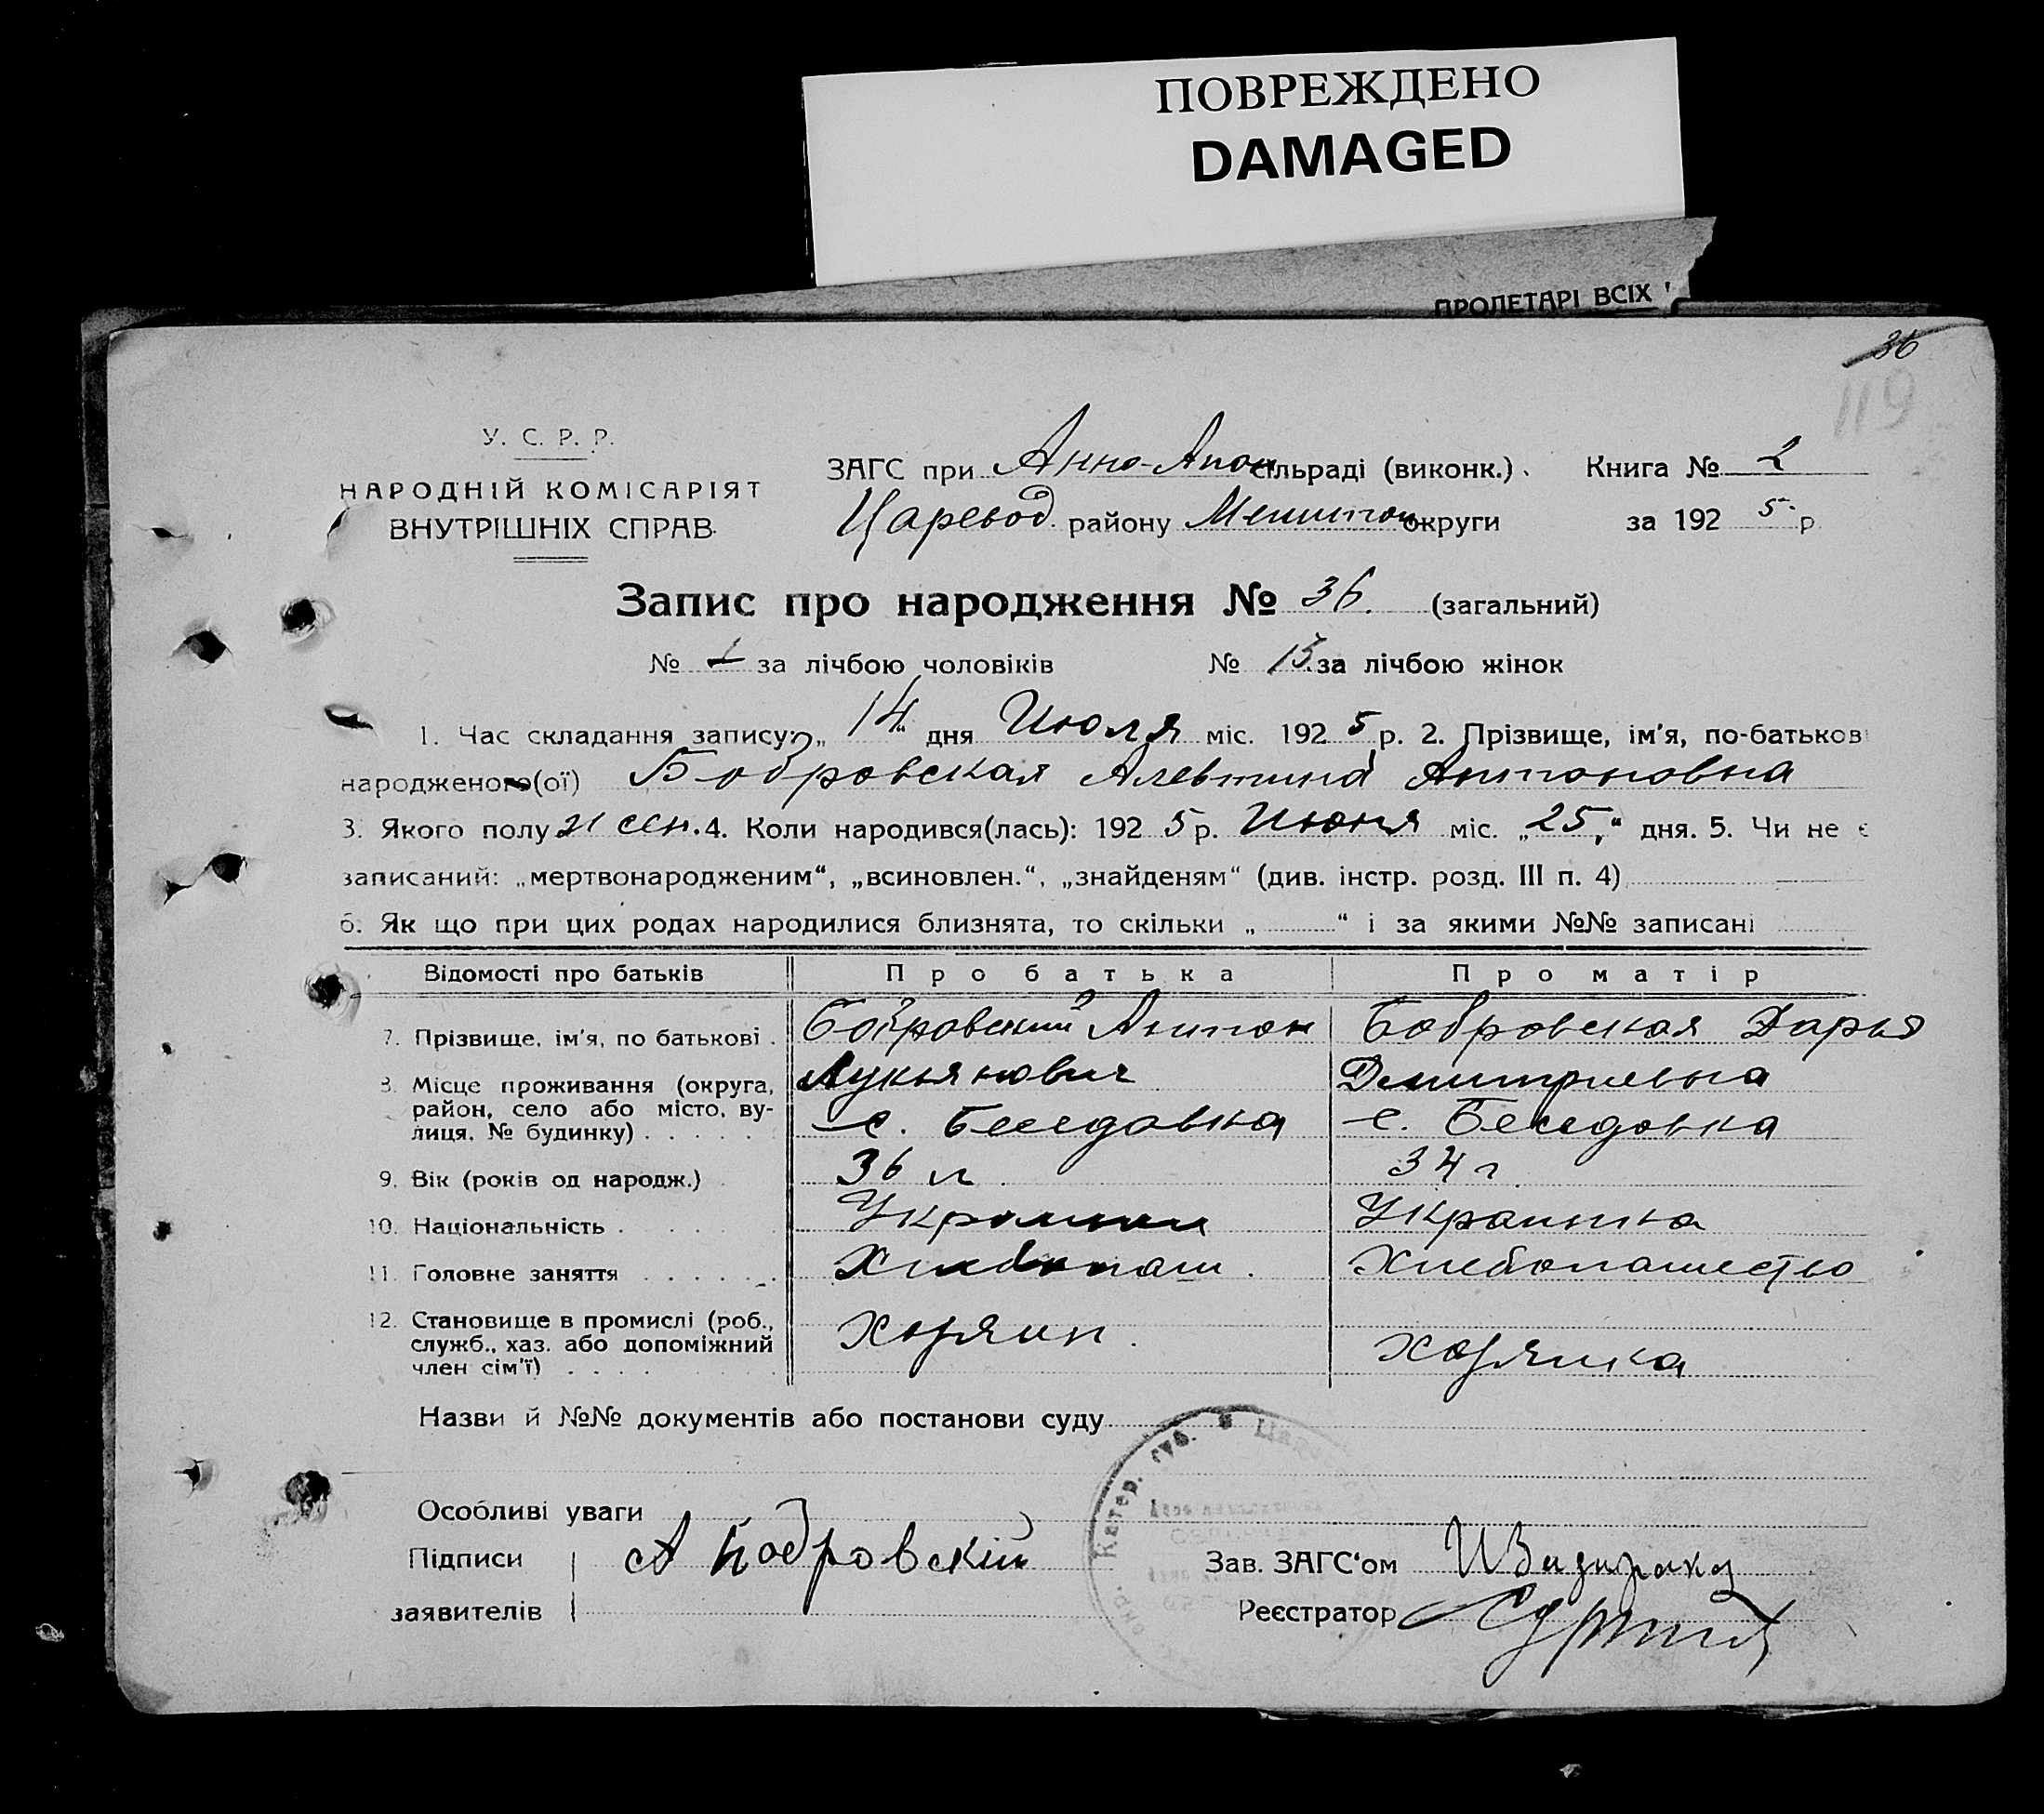 ПОВРЕЖДЕНО
DAMAGED
ПРОЛЕТАРІ ВСІХ
36
119
У. С. Р. Р.
НАРОДНІЙ КОМІСАРІЯТ
ВНУТРІШНІХ СПРАВ.
ЗАГС при Анно-Апон сільраді (виконк.). Книга № 2
Царевод. району Мелитоп округи за 192 5 р
Запис про народження № 36. (загальний)
№ за лічбою чоловіків № 15 за лічбою жінок
1. Час складання запису: „ 14 " дня Июля міс. 192 5 р. 2. Прізвище, ім'я, по-батьков
народженого(ої) Бобровская Алевтина Антоновна
3. Якого полу жен. 4. Коли народився(лась): 192 5 р. Июня міс. „ 25, “ дня. 5. Чи не є
записаний: „мертвонародженим“, „всиновлен.“, „знайденям“ (див. інстр. розд. III п. 4)
6. Як що при цих родах народилися близнята, то скільки „ “ і за якими №№ записані
Відомості про батьків Про батька Про матір
7. Прізвище, ім'я, по батькові . Бобровский Антон Бобровская Дарья
Лукьянович Дмитриевна
8. Місце проживання (округа, район, село або місто, ву-
лиця, № будинку) . . . . . с. Беседовка с. Беседовка
9. Вік (років од народж.) 36 л. 34 г.
10. Національність . Украинец Украинка
11. Головне заняття . . . . . . Хлебопаш. Хлебопашество
12. Становище в промислі (роб., служб., хаз. або допоміжний
член сім'ї) . . . . Хозяин. хозяйка
Назви й №№ документів або постанови суду
Катер. губ.
Особливі уваги
Підписи А Бобровскій Зав. ЗАГС‘ом
заявителів Реєстратор